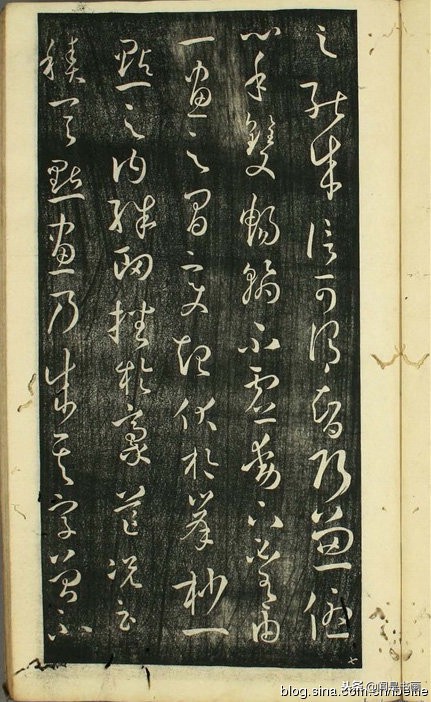 之能成信可謂智巧兼優
心手雙暢翰不虛動下必有由
一畫之間變起伏於峯杪一
點之內殊衄挫於豪芒況云
積其點畫乃成其字曾不
七
头条@闻是书画
blog.sina.com.cn/ibeitie